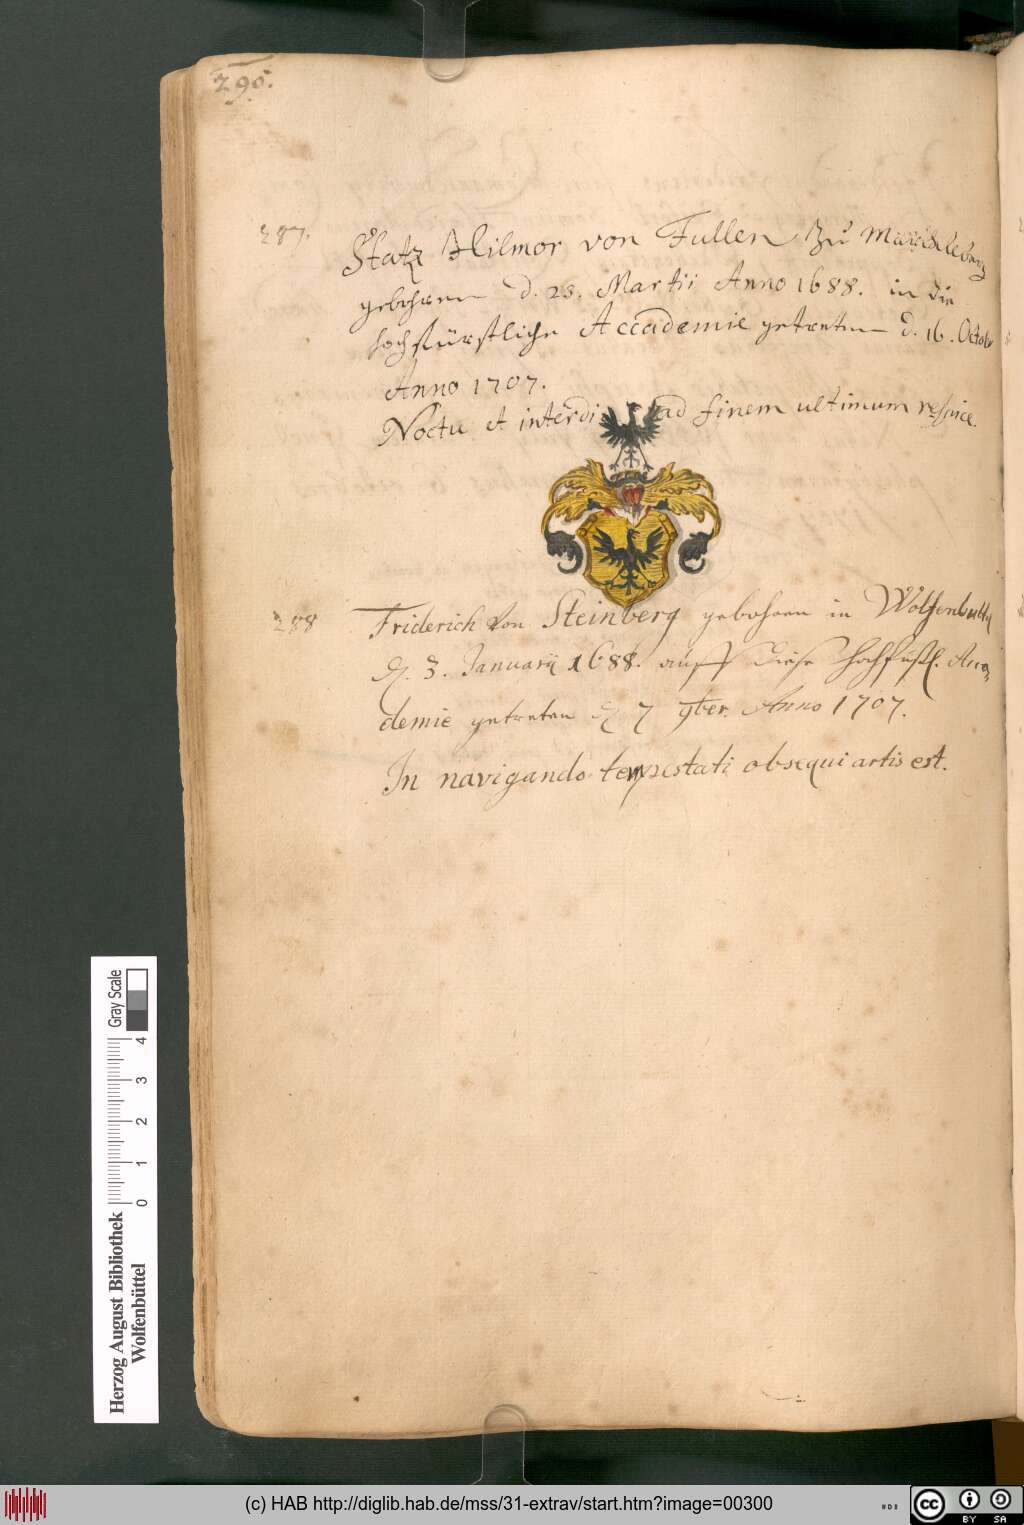 290.
287.
Statz Hilmor von Fullen zu Marckleberg
gebohren d. 23. Martii Anno 1688. in die
hochfürstliche Accademie getreten d. 16. Octobr
Anno 1707.
Noctu et interdi ad finem ultimum respice.
288
Friderich von Steinberg gebohren in Wolfenbuttel
d. 3. Januarii 1688. auff diese hochfürstl. Acca-
demie getreten d 7 9ber. Anno 1707.
In navigando tempestati obsequi artis est.
Herzog August Bibliothek
Wolfenbüttel
0 1 2 3 4
Gray Scale
(c) HAB http://diglib.hab.de/mss/31-extrav/start.htm?image=00300
HAB
cc BY SA